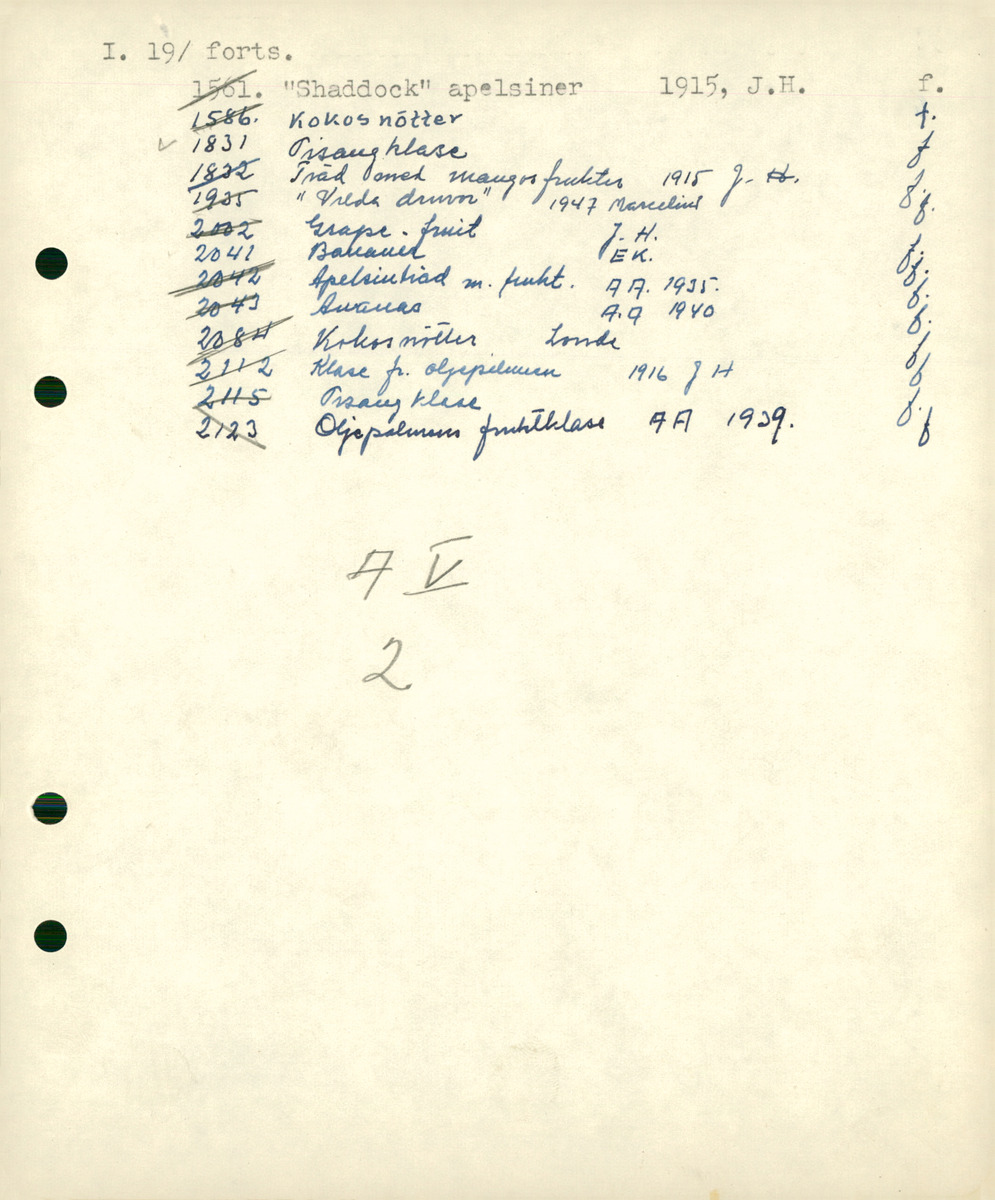 I. 19/ forts.
1561. "Shaddock" apelsiner 1915, J.H. f.
1586. Kokosnötter f.
✓ 1831 Pisangklase f
1832 Träd med mangosfrukter 1915 J. H. f.
1935 "Vilda druvor" 1947 Marcelius f.
2002 Grape-fruit J. H. f.
2041 Bananer EK. f.
2042 Apelsinträd m. frukt. AA. 1935. f.
2043 Ananas A.A 1940 f.
2084 Kokosnötter f
2112 Klase fr. oljepalmen 1916 J H f
2115 Pisangklase f.
2123 Oljepalmens fruktklase AA 1939. f
A V
2